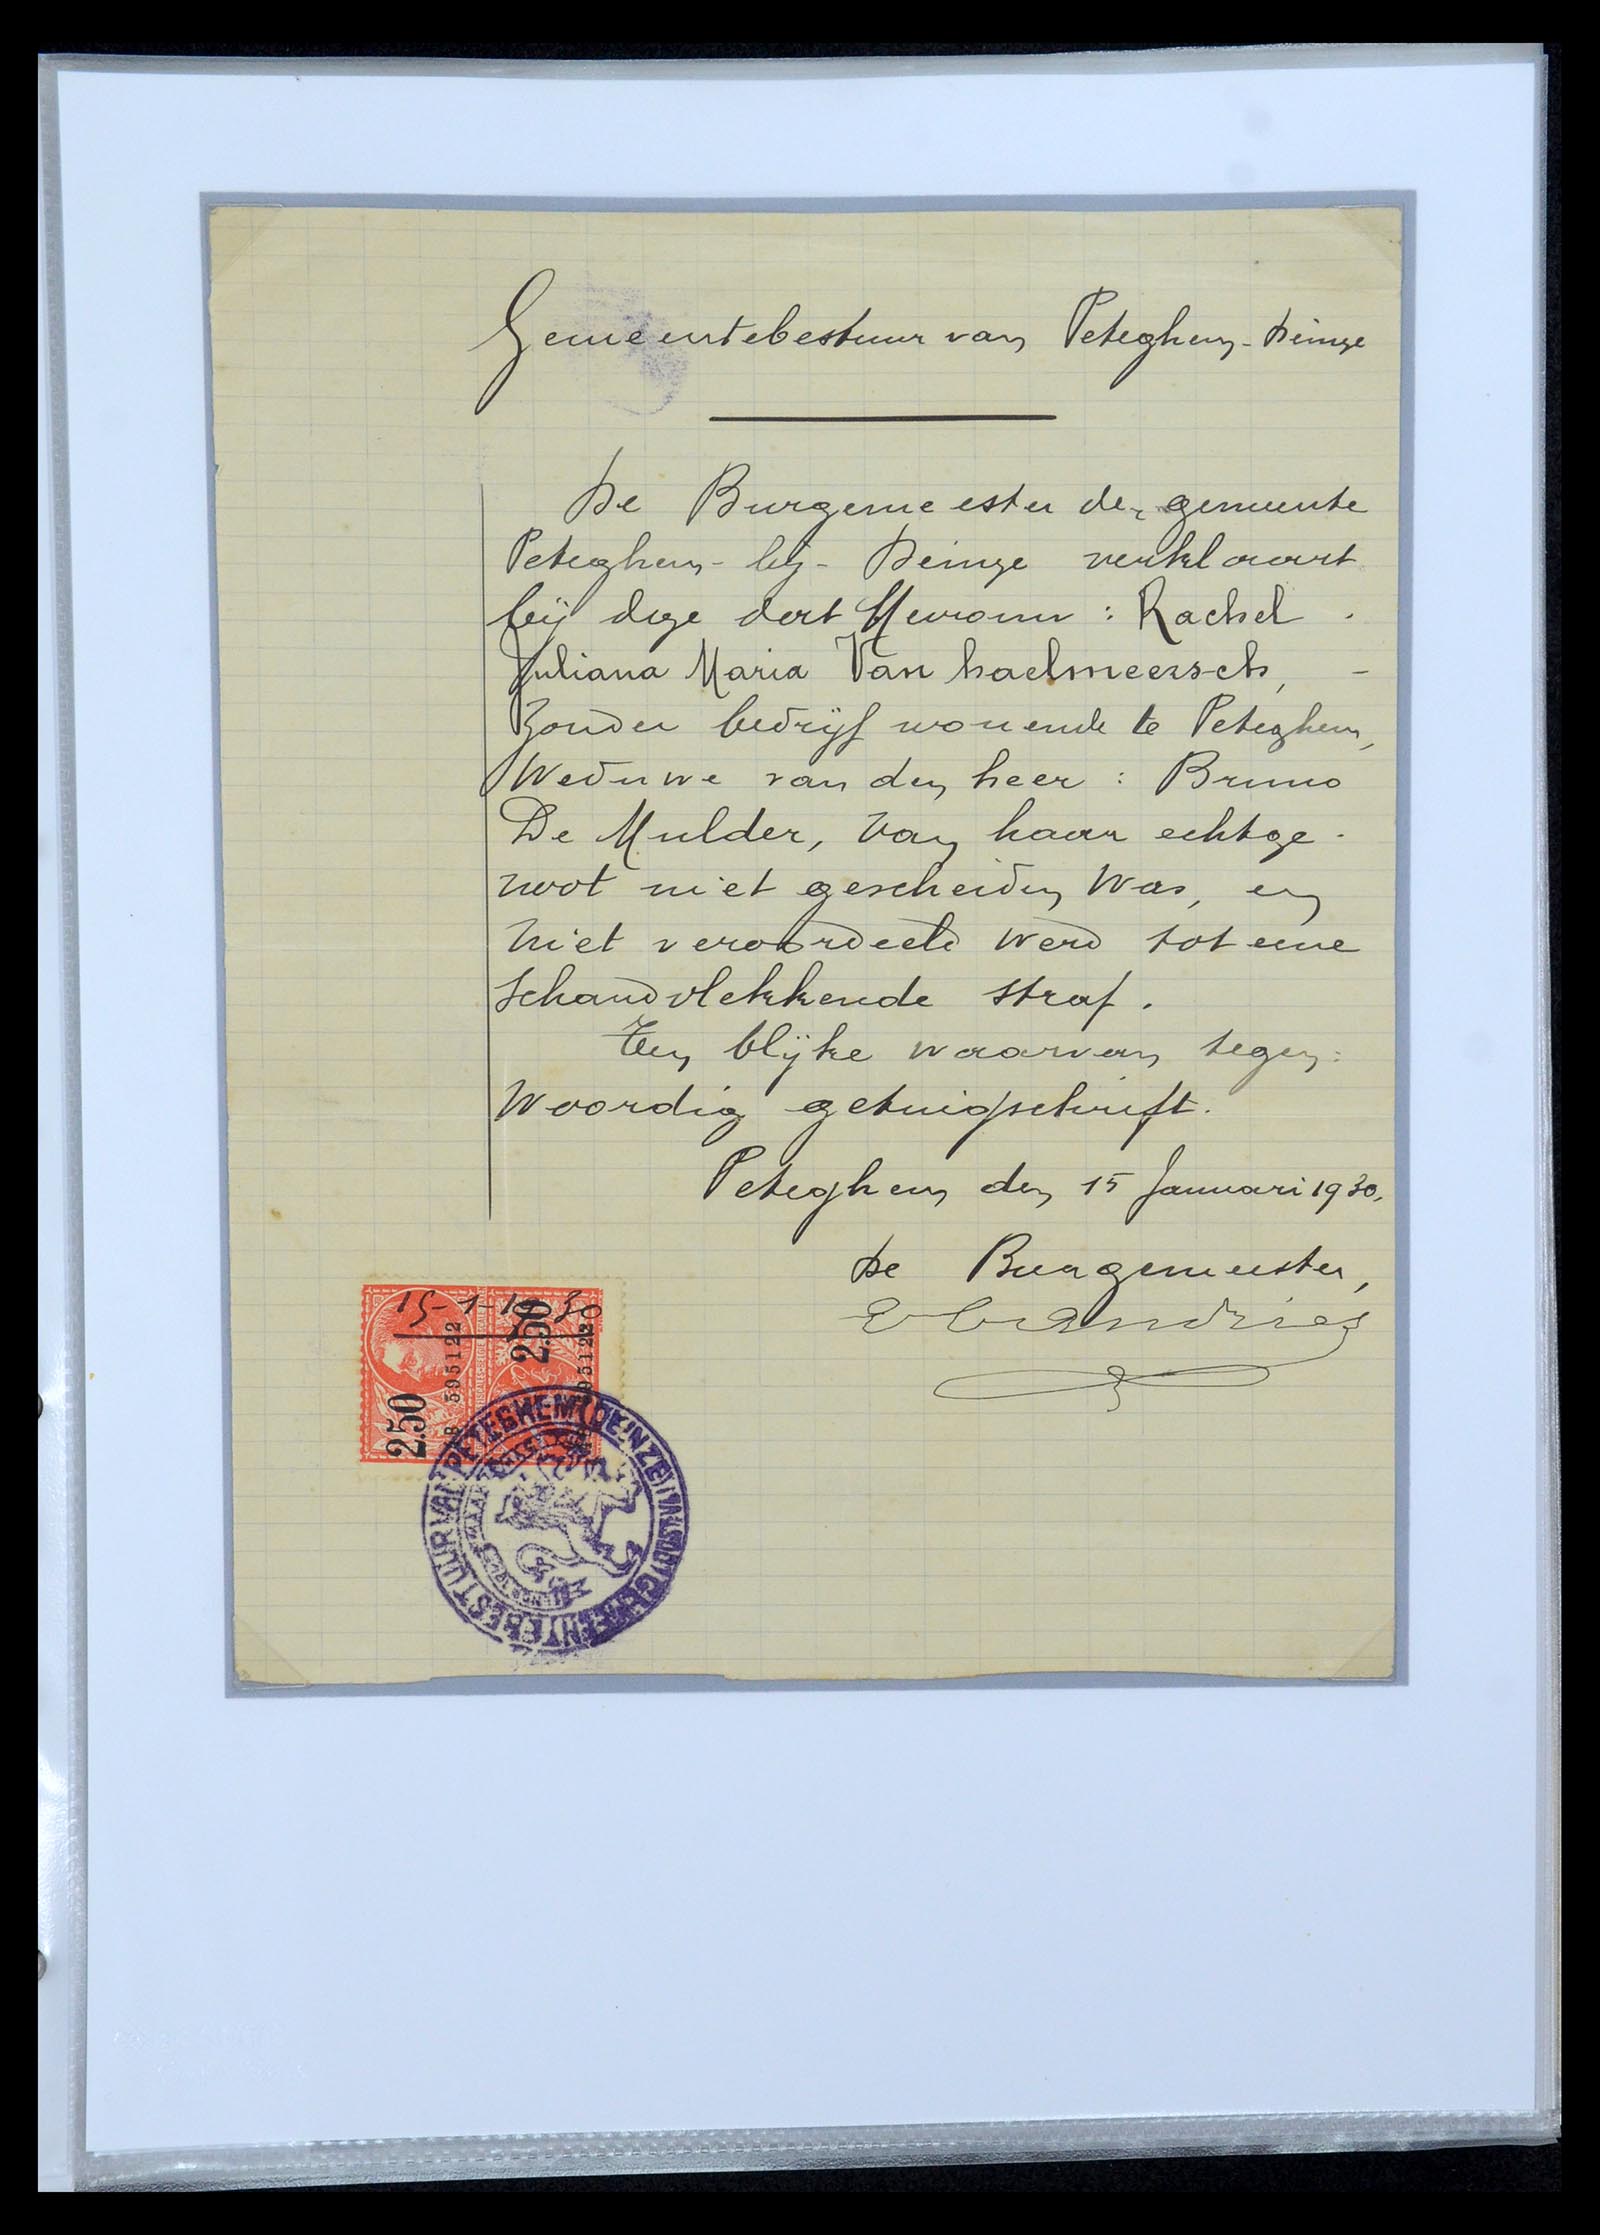 Gemeentebestuur van Peteghem-Deinze
De Burgemeester der gemeente
Peteghem-bij-Deinze verklaart
bij deze dat Mevrouw : Rachel
Juliana Maria Van haelmeersch, -
Zonder bedrijf wonende te Peteghem,
Weduwe van den heer : Bruno
De Mulder, Van haar echtge-
noot niet gescheiden Was, en
niet veroordeeld werd tot eene
schandvlekkende straf.
Ten blijke waarvan tegen:
Woordig getuigschrift.
Peteghem den 15 Januari 1930.
De Burgemeester,
15-1-1930
2.50
595122
2.50
595122
GEMEENTEBESTUUR VAN PETEGHEM (DEINZE)